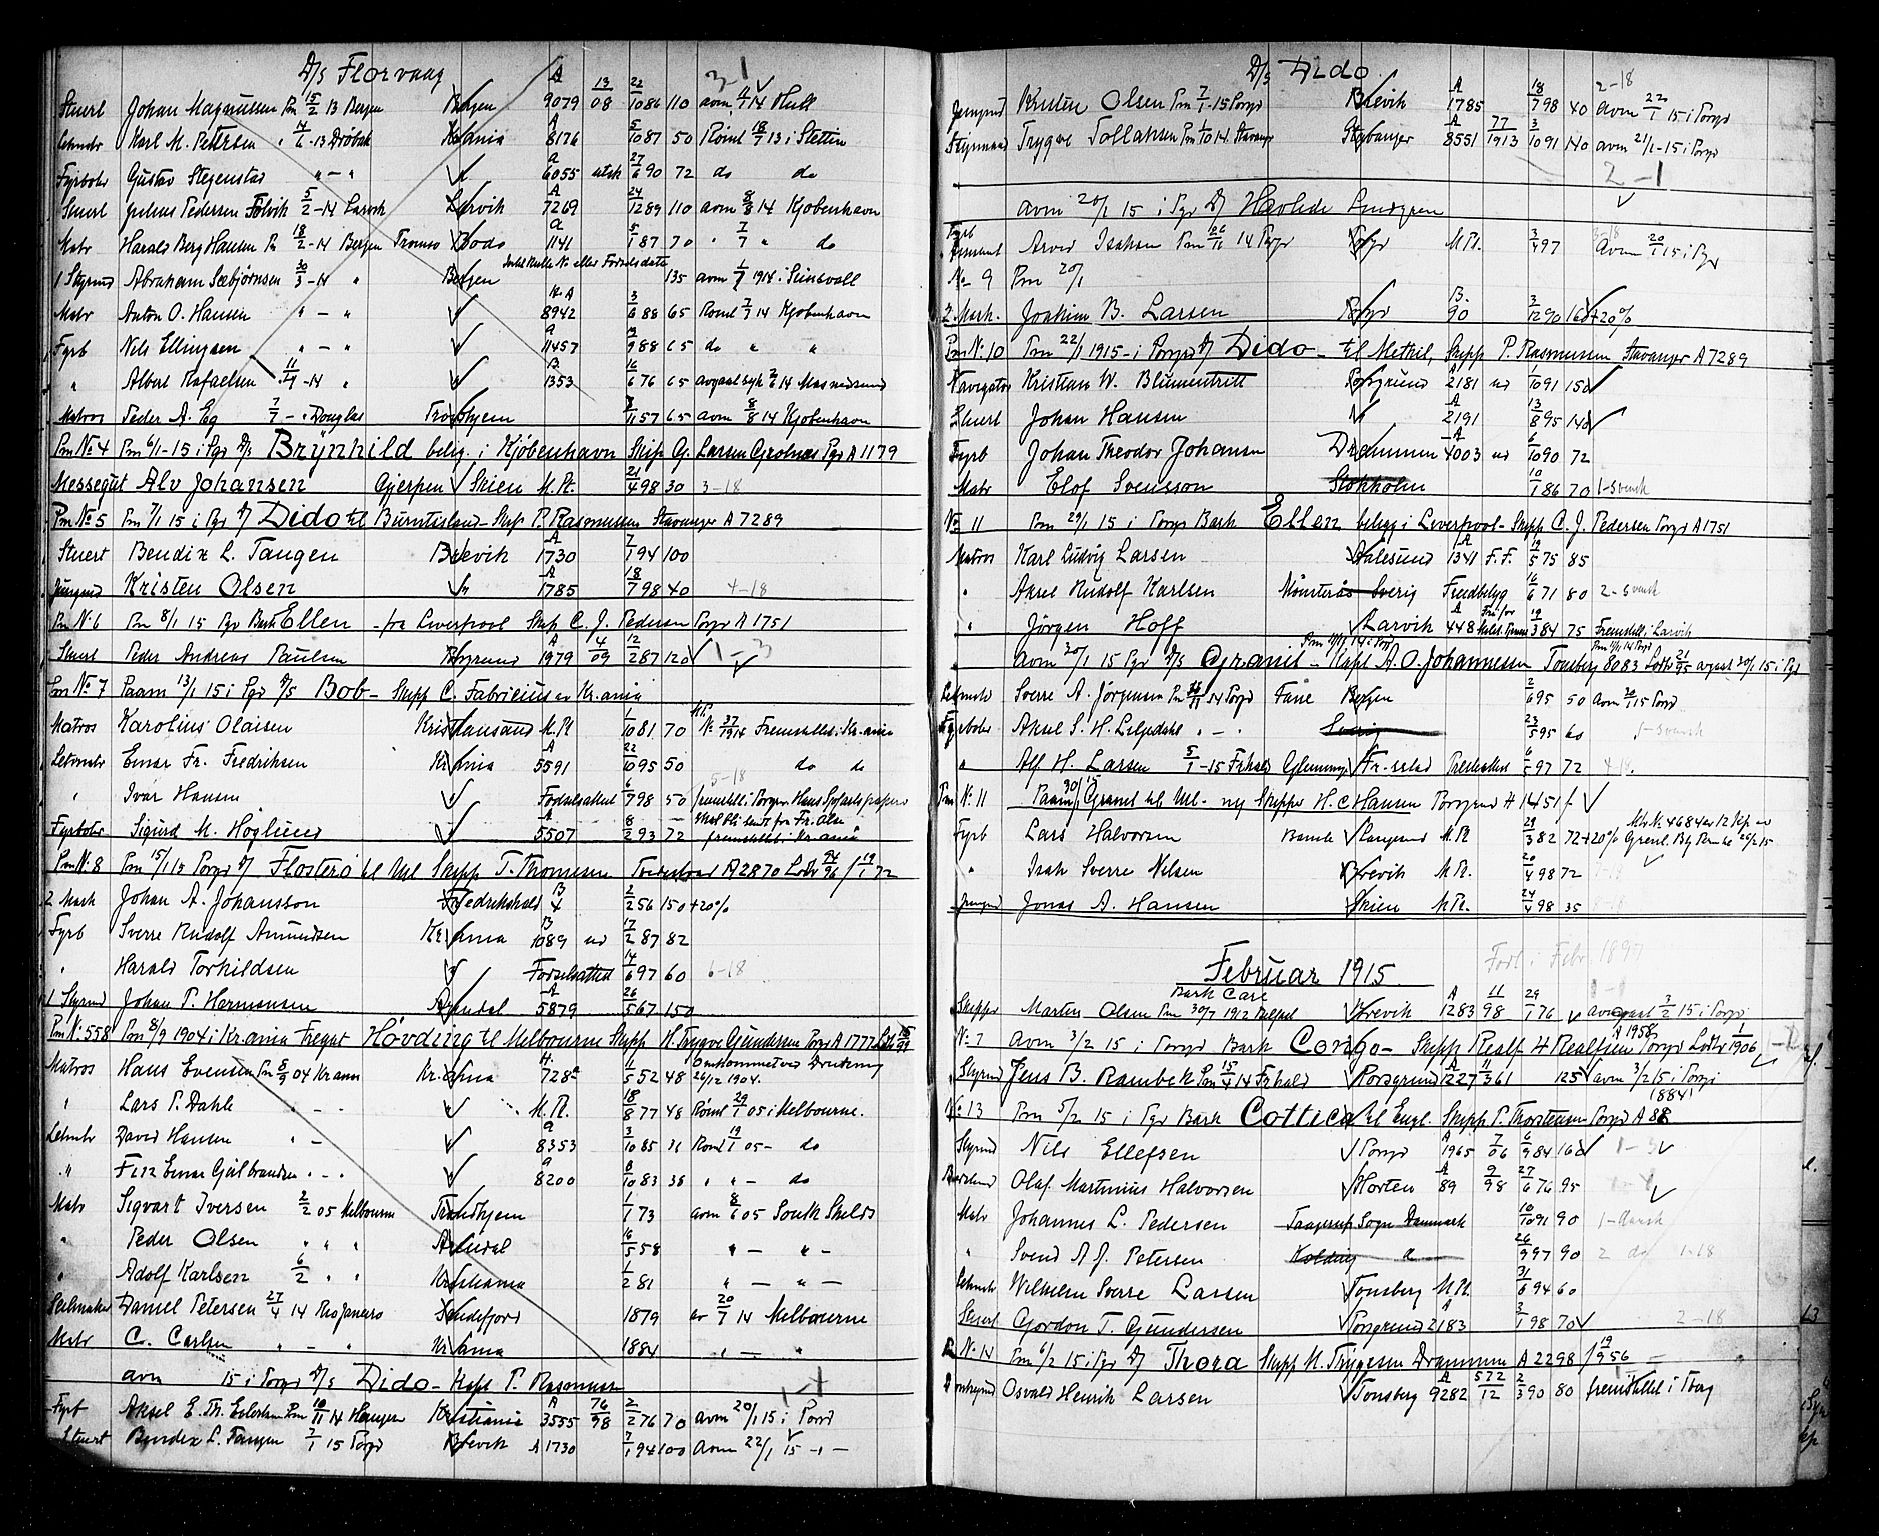 D/s Florvaag
Stuert Johan Magnussen Pm 15/2 13 Bergen Bergen A 9079 13/08 22/10 86 110 avm 4/7 14 Hull
Letmatr Karl M. Pettersen " 4/6 -13 Drøbak Kr.ania A 8176 5/10 87 50 Römt 18/7 13 i Stettin
Fyrbøter Gustav Stegenstad " - " " a 6055 utsk 27/6 90 72 do do
Stuert Julius Pedersen Folvik 5/2 -14 Larvik Larvik A 7269 24/12 89 110 avm 8/8 14 Kjøbenhavn
Matr Harald Berg Hansen Pm 18/2 -14 Bergen Tromsø Bodø a 1141 5/1 87 70 " 7/7 " do
1 Styrmd Abraham Sæbjørnsen 30/3 -14 " Bergen Intet Rulle No eller Fødselsdato 135 avm 1/7 1914 i Sundsvall
Matr Anton O. Hansen " - " " Kr A 8942 3/6 88 65 Römt 7/7 14 Kjøbenhavn
Fyrb Nils Ellingsen " - " " a 11457 9 88 65 do " "
" Albert Rafaelsen 11/4 -14 " " B 1353 16/6 76 65 avgaat syk 14 Masnedsund
Matros Peder A. Eg 7/7 - " Douglas Trondhjem 11 57 65 avm 8/8 14 Kjøbenhavn
Pm No 4 Pm 6/1 -15 i Pgr D/s Brynhild belig. i Kjöbenhavn Skip. G. Larsen Grolnæs Pgr A 1179
Messegut Alv Johansen Gjerpen Skien M.Pt. 21/4 98 30 3-18
Pm No 5 Pm 7/1 15 i Pgr D/s Dido til Burntisland - Skip. P. Rasmussen Stavanger A 7289
Stuert Bendix L. Tangen Brevik A 1730 7/1 94 100
Jungmd Kristen Olsen " A 1785 18/7 98 40 4-18
Pm No 6 Pm 8/1 15 Pgr Bark Ellen - fra Liverpool Skip C. J. Pedersen Porgr A 1751
Stuert Peder Andreas Paulsen Porsgrund A 1979 14/09 12/2 87 120 1-3
Pm No 7 Paam 13/1 15 i Pgr D/s Bob - Skipp C. Fabricius av Kr.ania
Matros Karolius Olaisen Kristiansund M.Pt 1/10 81 70 M.Pt. No 37/1914 Fremstilles i Kr.ania
Letmatr Einar Fr. Fredriksen Kr.ania A 5591 22/10 95 50 do do
" Ivar Hansen " Fødselsattest 6/7 98 50 5-18 fremstill. i Porsgr. Hans Sjøfartspapirer
Fyrbøter Sigurd M. Höglund " A 5507 8/2 93 72 skal bli sendt fra Fr. Olsen fremstillet i Kr.ania
Pm No 8 Pm 15/1 15 Porgr D/s Flosterö til Ml Skipp T. Thomesen Tvedestrand A 2870 Lods 94/96 f 19/1 72
2 Mask Johan A. Johansson Fredrikshald B 4 2/2 56 150 +20%
Fyrb Sverre Rudolf Amundsen Kr.ania B 1089 ud 17/2 87 82
" Harald Torkildsen " Fødselsattest 14/6 97 60 6-18
1 Styrmd Johan P. Hermansen Arendal A 5879 26/5 67 150
Pm No 558 Pm 8/9 1904 i Kr.ania Fregat Hövding til Melbourne Skipp H. Trygve Gundersen Porgr A 1777
Matros Hans Evensen Pm 8/9 04 Kr.ania Kr.ania H. 728 1/5 52 48 Omkommet ved Drukning 26/12 1904.
" Lars P. Dahle " - " " M.Pt. 18/8 77 48 Römt 29/1 05 i Melbourne.
Letmatr David Hansen " - " a 8353 3/10 85 36 Römt 19/1 05 - do
" Finn Einar Gulbrandsen " - " " a 8200 8/10 83 38 " " - do
Matr Sigvart Iversen 2/2 05 Melbourne Trondhjem 1/1 73 avm 8/6 05 South Shields
" Peder Olsen " " " Arendal 6/5 58 " - " -
" Adolf Karlsen 6/2 " " Kristiania 1/2 81 " - " -
Seilmaker Daniel Petersen 27/4 14 Rio Janeiro Sandefjord 1879 av 20/7 14 Melbourne
Matr C. Carlsen " - " Kr.ania 1884 " - "
avm 15 i Porgr D/s Dido - Kapt P. Rasmussen
Fyrb Aksel E. Th. Pm 10/11 14 Kristiania A 3555 76/98 2/2 76 70 avm 20/1 15 i Porgr
Stuert Bendix L. Tangen 7/1 15 Porgr Brevik A 1730 7/1 94 100 avm 22/1 15 - " -
D/s Dido
Jungmd Kristen Olsen Pm 7/1 -15 Porgr Brevik A 1785 18/7 98 40 2-18 avm 22/1 15 i Porgr
Styrmand Trygve Tollaksen Pm 1/10 14 Stavanger Stavanger A 8551 77/1913 3/10 91 140 avm 21/1 -15 i Porgr
2-1
avm 20/1 15 i Pgr D/s Lindgren
Fyrb Assistent Arvid Isaksen Pm 26/11 14 Porgr Porgr M.Pt. 3/4 97 3-18 avm 20/1 15 i Pgr
No 9 Pm 20/1
2 Mask. Joakim B. Larsen Porgr B. 90 3/12 90 160 +20%
Pm No 10 Pm 22/1 1915 - i Porgr D/s Dido - til Methil, Skipp P. Rasmussen Stavanger A 7289
Navigatør Kristian W. Blumentritt Porsgrund A 2181 ud 1/10 91 150
Stuert Johan Hansen " A 2191 13/8 95 140
Fyrb Johan Theodor Johansen Drammen A 4003 ud 6/10 90 72
Matr Elof Svensson Stokholm 10/1 86 70 1-svensk
No 11 Pm 29/1 15 i Porgr Bark Ellen beligg i Liverpool - Skipp C. J. Pedersen Porgr A 1751
Matros Karl Ludvig Larsen Aalesund A 1341 F.F. 19/5 75 85
" Axel Rudolf Karlsen Mönsterås Sverig Fredbelyg 16/6 71 80 2-svensk
" Jörgen Hoff Larvik A 448 19/3 84 75 Fremstill i Larvik
" avm 30/1 15 Pgr D/s Granit - Kapt A. O. Johannessen Tönsberg 8083 Lods 21/95 avgaat 30/1 15 i Pgr
Letmatr Sverre A. Jörgensen Pm 14 Porgr Fane Bergen 2/6 95 50 avm 30/1 15 Porgr
Fyrbøter Aksel S. H. Liljedahl " - " Sverig 23/5 95 60 1-svensk
" Alf H. Larsen 5/1 -15 Frhald Glemminge Fr.stad Presteattest 6/5 97 72 4-18.
Pm No 11 Paam 30/1 15 Granit til Ml - ny Skipper H. C. Hansen Porsgrund A 1451 f.
Fyrb Lars Halvorsen Bamle Langesund M.Pt 29/3 82 72 +20%
" Isak Sverre Nilsen Brevik M.Pt. 20/4 98 72 1-18
Jungmd Jonas A. Hansen Skien M.Pt. 24/4 98 35
Februar 1915 Født i Febr 1897
Skipper Marten Olsen Bark Carl Pm 30/7 1912 Brevik A 1283 11/98 29/1 76 avgaat 3/2 15 i Porgr
No 7 Avm 3/2 15 i Porgr Bark Congo - Skipp Realf H Realfsen A 1958 Porgr Lods 1/1906
Styrmd Jens B. Rambek Pm 15/4 14 Frhald Porsgrund A 1227 11/3 61 125 avm 3/2 15 i Porgr
No 13 Pm 5/2 15 i Pgr Bark Cottica til Engl. Skipp P. Thorstensen Porgr A 88 (1884)
Styrmd Nils Ellefsen Porgr A 1965 7/06 6/9 84 160 1-3
Olaf Martinius Halvorsen Horten A 89 9/98 27/6 76 95
Matr Johannes L. Pedersen Taagerup Sogn Danmark 10/10 91 90 1-dansk
" Svend A J. Petersen Kolding " 26/9 97 90 2 do 1-18
Letmatr Wilhelm Sverre Larsen Tönsberg M.Pt. 31/8 94 60
Stuert Gordon T. Gundersen Porsgrund A 2183 3/1 98 70 2-18
Pm No 14 Pm 6/2 15 i Pgr D/s Thora Skipp N. Thygesen Drammen A 2298 f 19/9 56 -
Donkeymd Osvald Henrik Larsen Tönsberg A 9282 572/12 2/3 90 80 fremstillet i Tbg